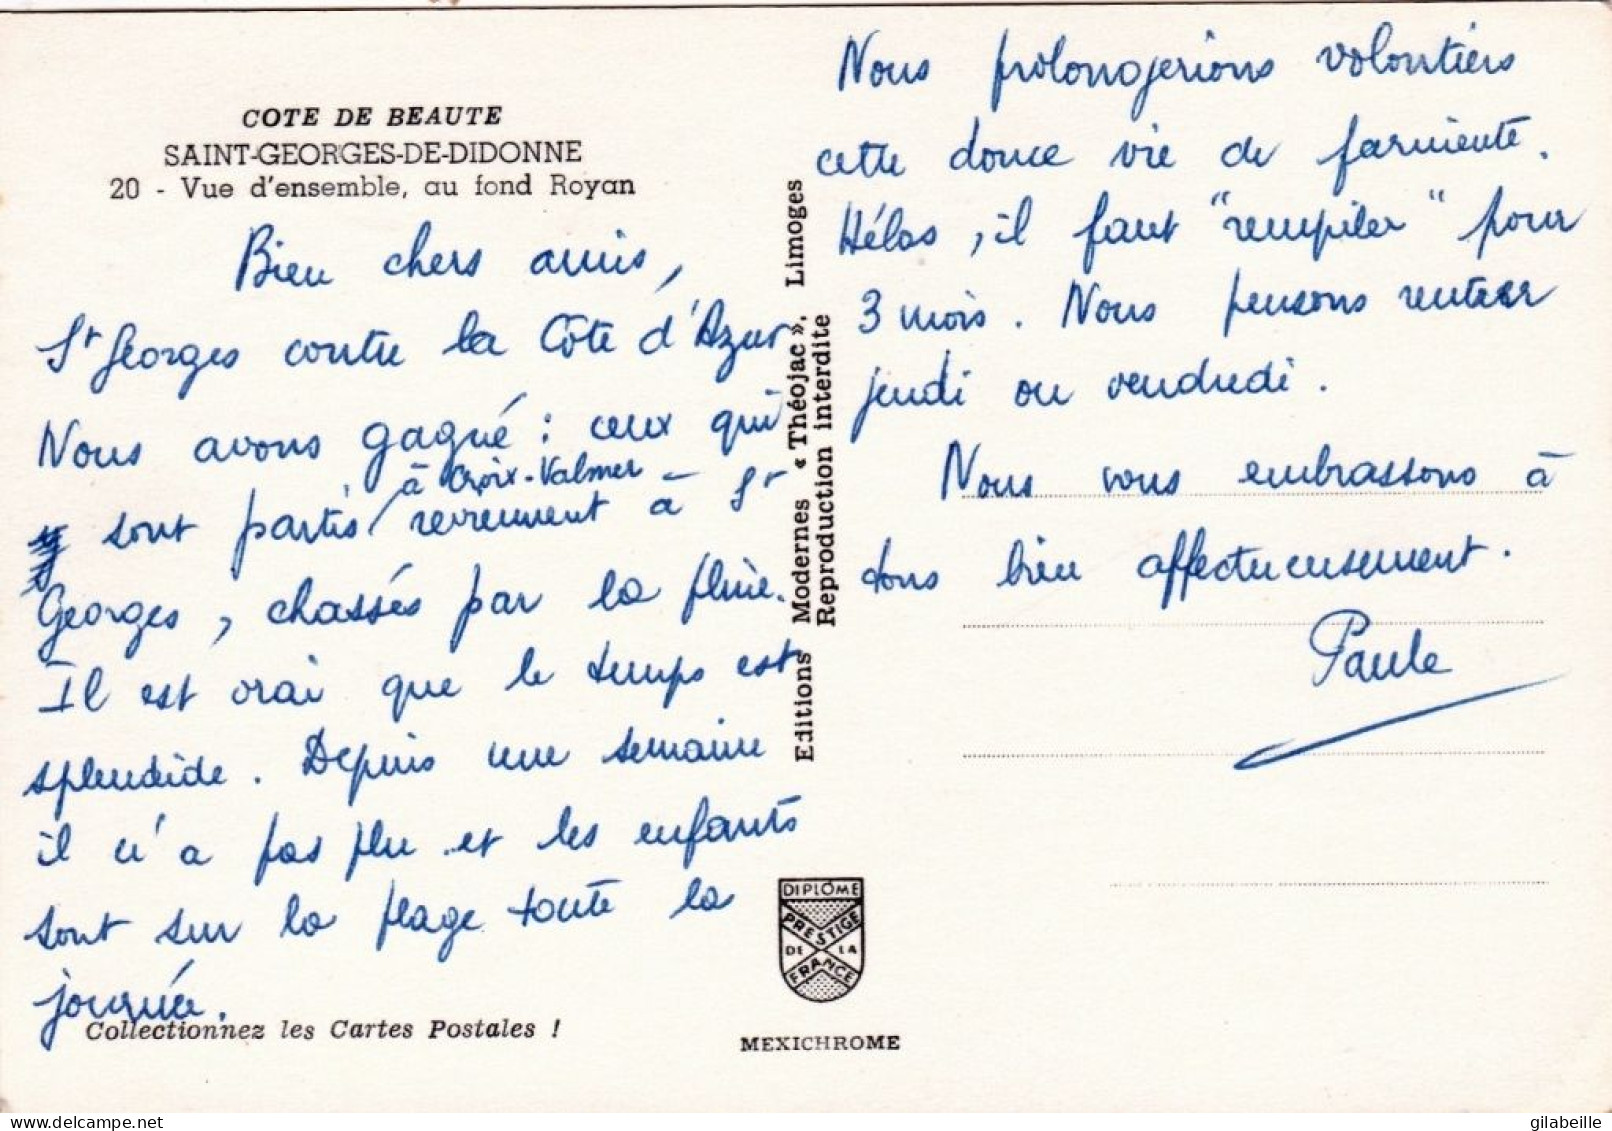 COTE DE BEAUTE
SAINT-GEORGES-DE-DIDONNE
20 - Vue d'ensemble, au fond Royan
Bien chers amis,
St Georges contre la Côte d'Azur
Nous avons gagné : ceux qui
sont partis à Croix-Valmer reviennent à St
Georges, chassés par la pluie.
Il est vrai que le temps est
splendide. Depuis une semaine
il n'a pas plu et les enfants
sont sur la plage toute la
journée.
Collectionnez les Cartes Postales !
Editions Modernes « Théojac », Limoges
Reproduction interdite
DIPLÔME
PRESTIGE
DE LA
FRANCE
MEXICHROME
Nous prolongerions volontiers
cette douce vie de farniente.
Hélas, il faut "rempiler" pour
3 mois. Nous pensons rentrer
jeudi ou vendredi.
Nous vous embrassons à
tous bien affectueusement.
Paule
www.delcampe.net
gilabeille